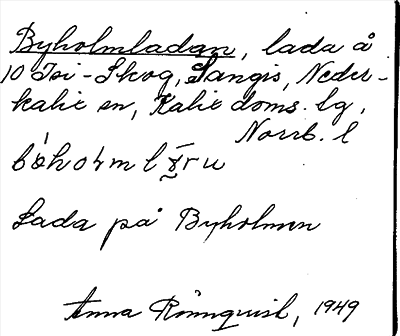 Byholmladan, lada å
10 Isi-Skog, Sangis, Neder-
kalix sn, Kalix doms. lg,
Norrb. l
Lada på Byholmen
Anna Rönnquist, 1949